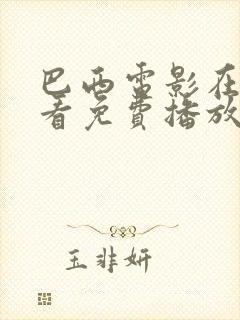 巴西雷影在
看免费播放
玉非妍